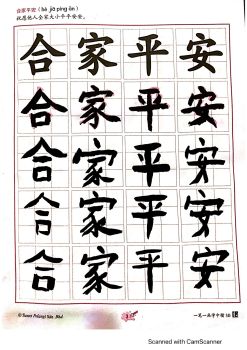 合家平安 (hé jiā píng ān)
祝愿他人全家大小平平安安。
合家平安
合家平安
合家平安
合家平安
合家平安
© Sasbadi Sdn. Bhd.
Scanned with CamScanner